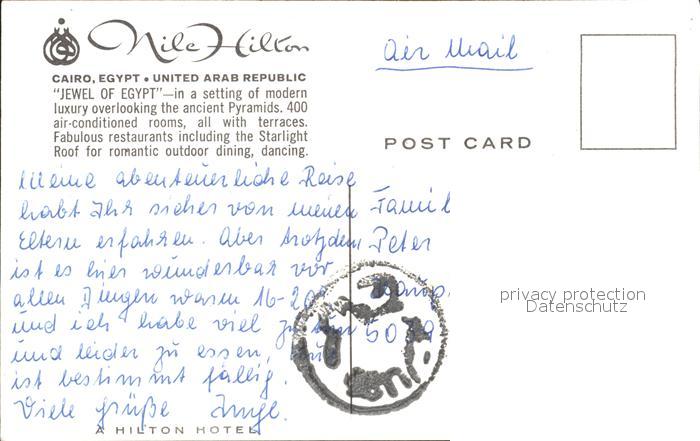 Nile Hilton
CAIRO, EGYPT • UNITED ARAB REPUBLIC
"JEWEL OF EGYPT"—in a setting of modern
luxury overlooking the ancient Pyramids. 400
air-conditioned rooms, all with terraces.
Fabulous restaurants including the Starlight
Roof for romantic outdoor dining, dancing.
Air Mail
POST CARD
Meine abenteuerliche Reise
habt Ihr sicher von meinen
Eltern erfahren. Aber trotzdem
ist es hier wunderbar vor
allen Dingen warm 16-20°
und ich habe viel zu tun
und leider zu essen,
ist bestimmt fällig.
Viele Grüße Inge.
Famil
Peter
5039
privacy protection
Datenschutz
A HILTON HOTEL